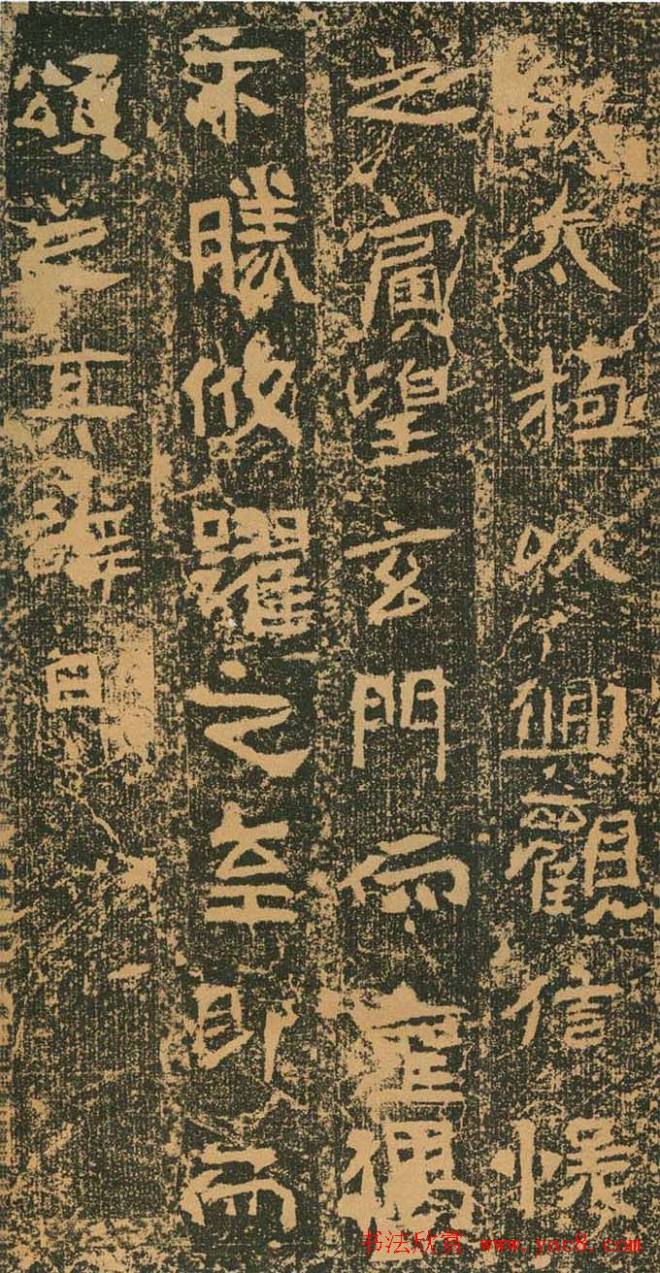 太極以興觀信悵
之寘望玄門而
不勝攸躍之至即而
頌之其辭曰
书法欣赏 www.yac8.com